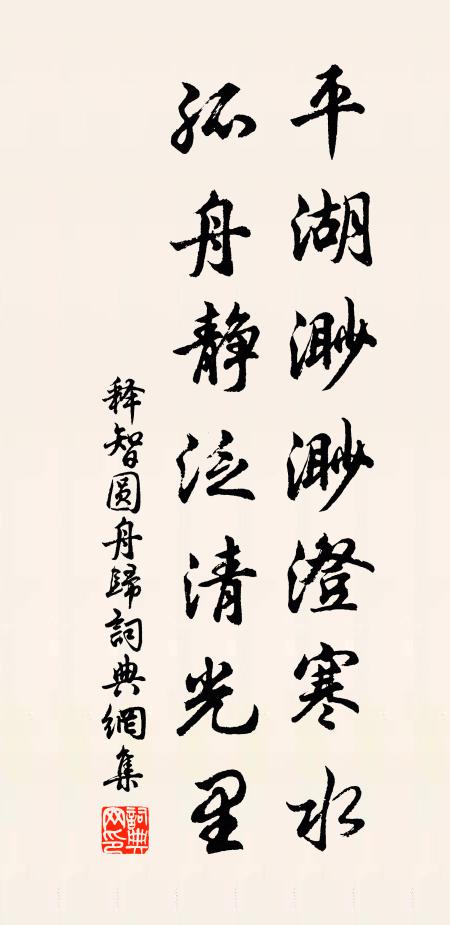 平湖渺渺澄寒水
孤舟静泛清光里
释智圆舟歸詞典網集
詞典
网印